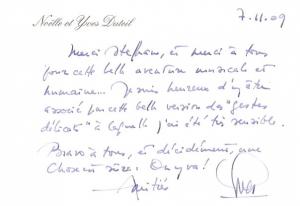 Noëlle et Yves Duteil
7.11.09
Merci Stéfano, et merci à tous
pour cette belle aventure musicale et
humaine... Je suis heureux d'y être
associé par cette belle version des "gestes
délicats" à laquelle j'ai été très sensible.
Bravo à tous, et décidément, une
chose est sûre : On y va !
Amitiés
Yves